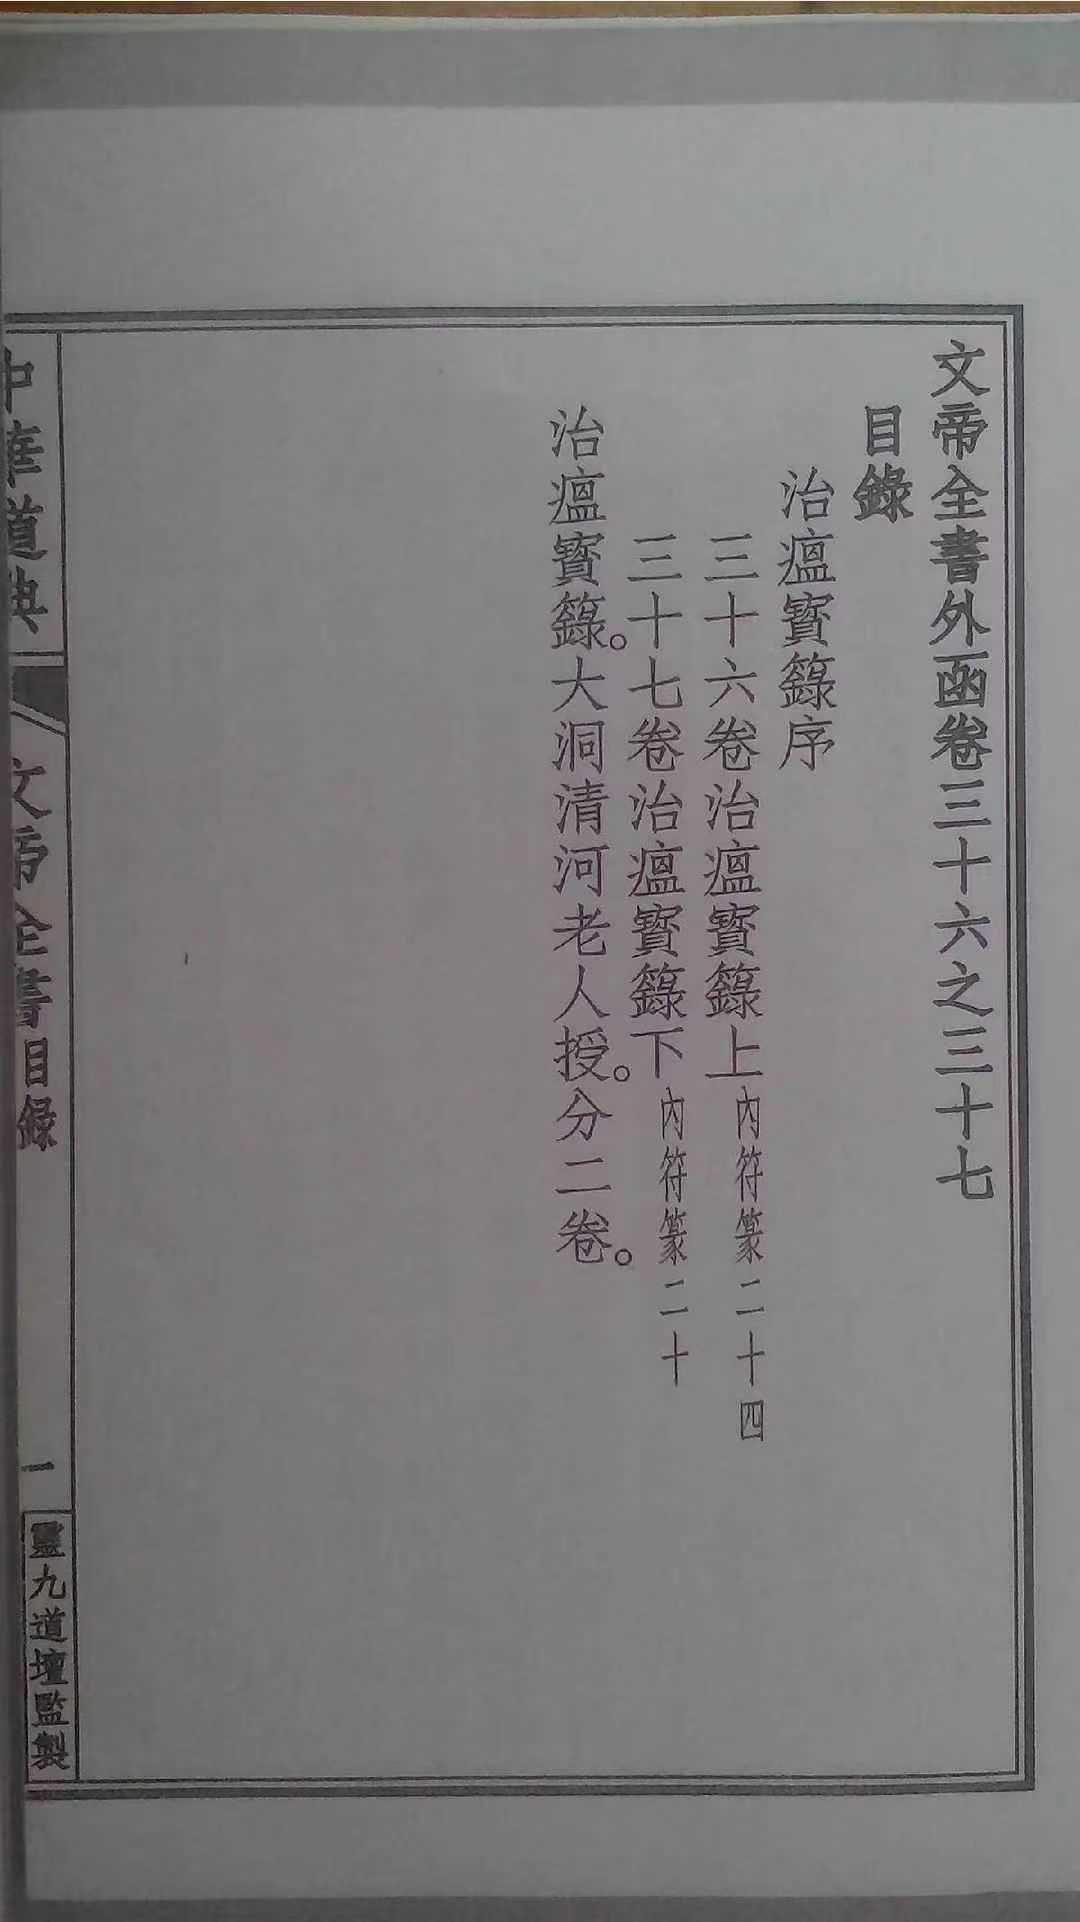 文帝全書外函卷三十六之三十七
目錄
治瘟寳籙序
三十六卷治瘟寳籙上內符篆二十四
三十七卷治瘟寳籙下內符篆二十
治瘟寳籙。大洞清河老人授。分二卷。
中華道典
文帝全書目錄
一
靈九道壇監製